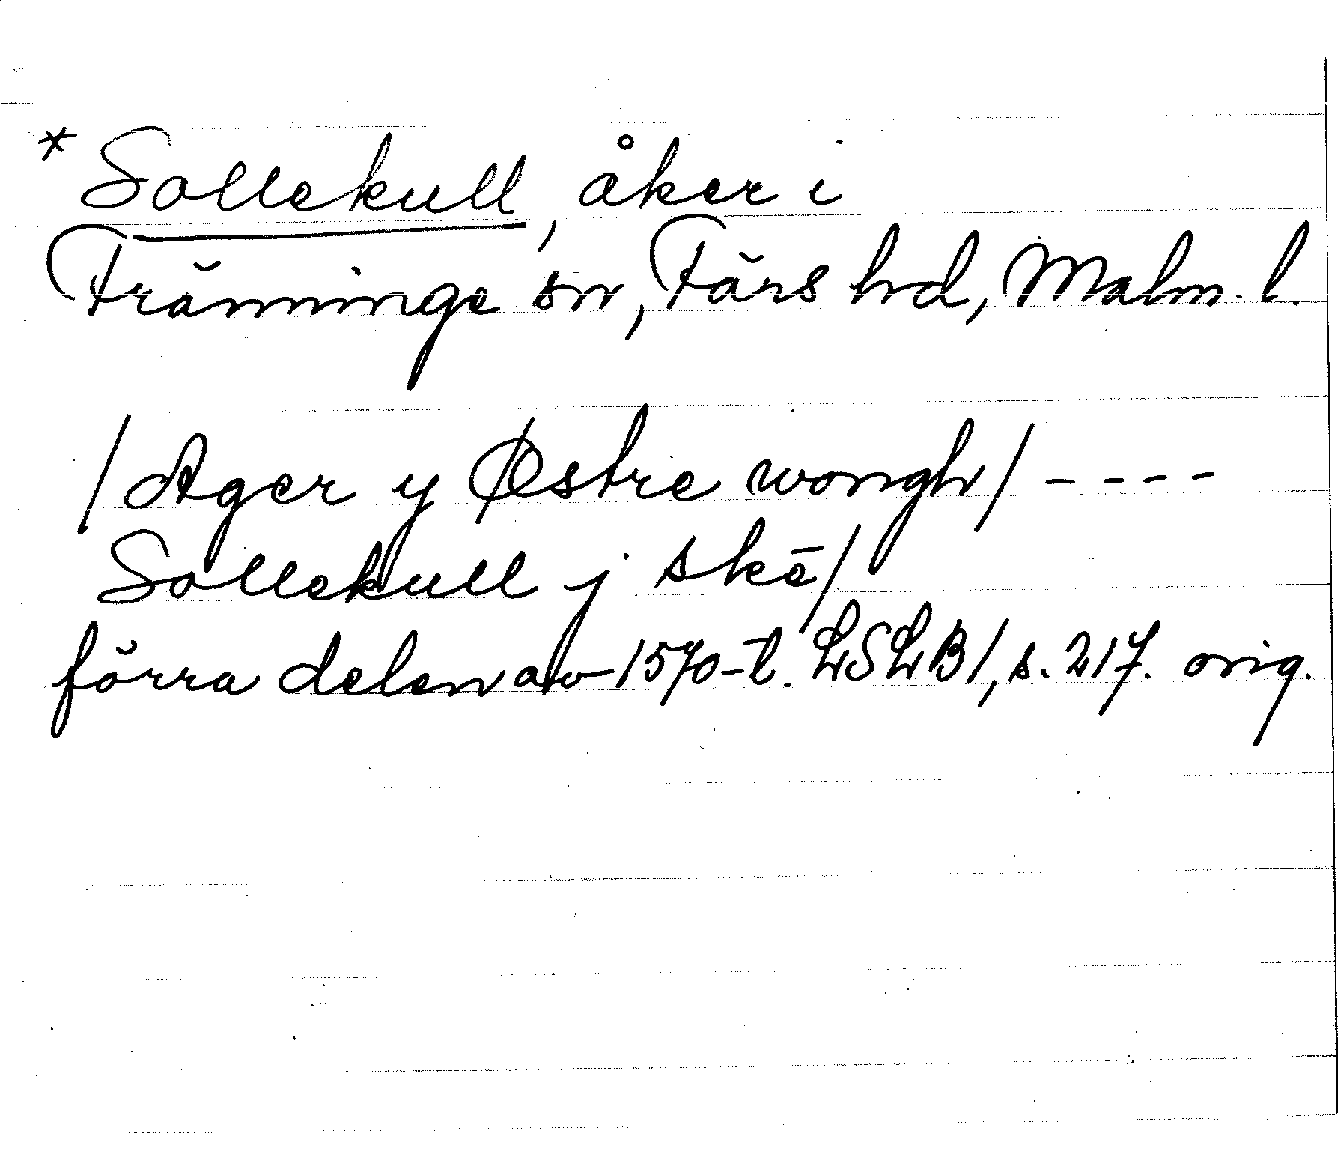 *Sollekull, åker i
Fränninge sn, Färs hd, Malm. l.
/Ager y Østre wongh/ - - - -
Sollekull j skē/
förra delen av 1570-t. LSLB1, s. 217. orig.